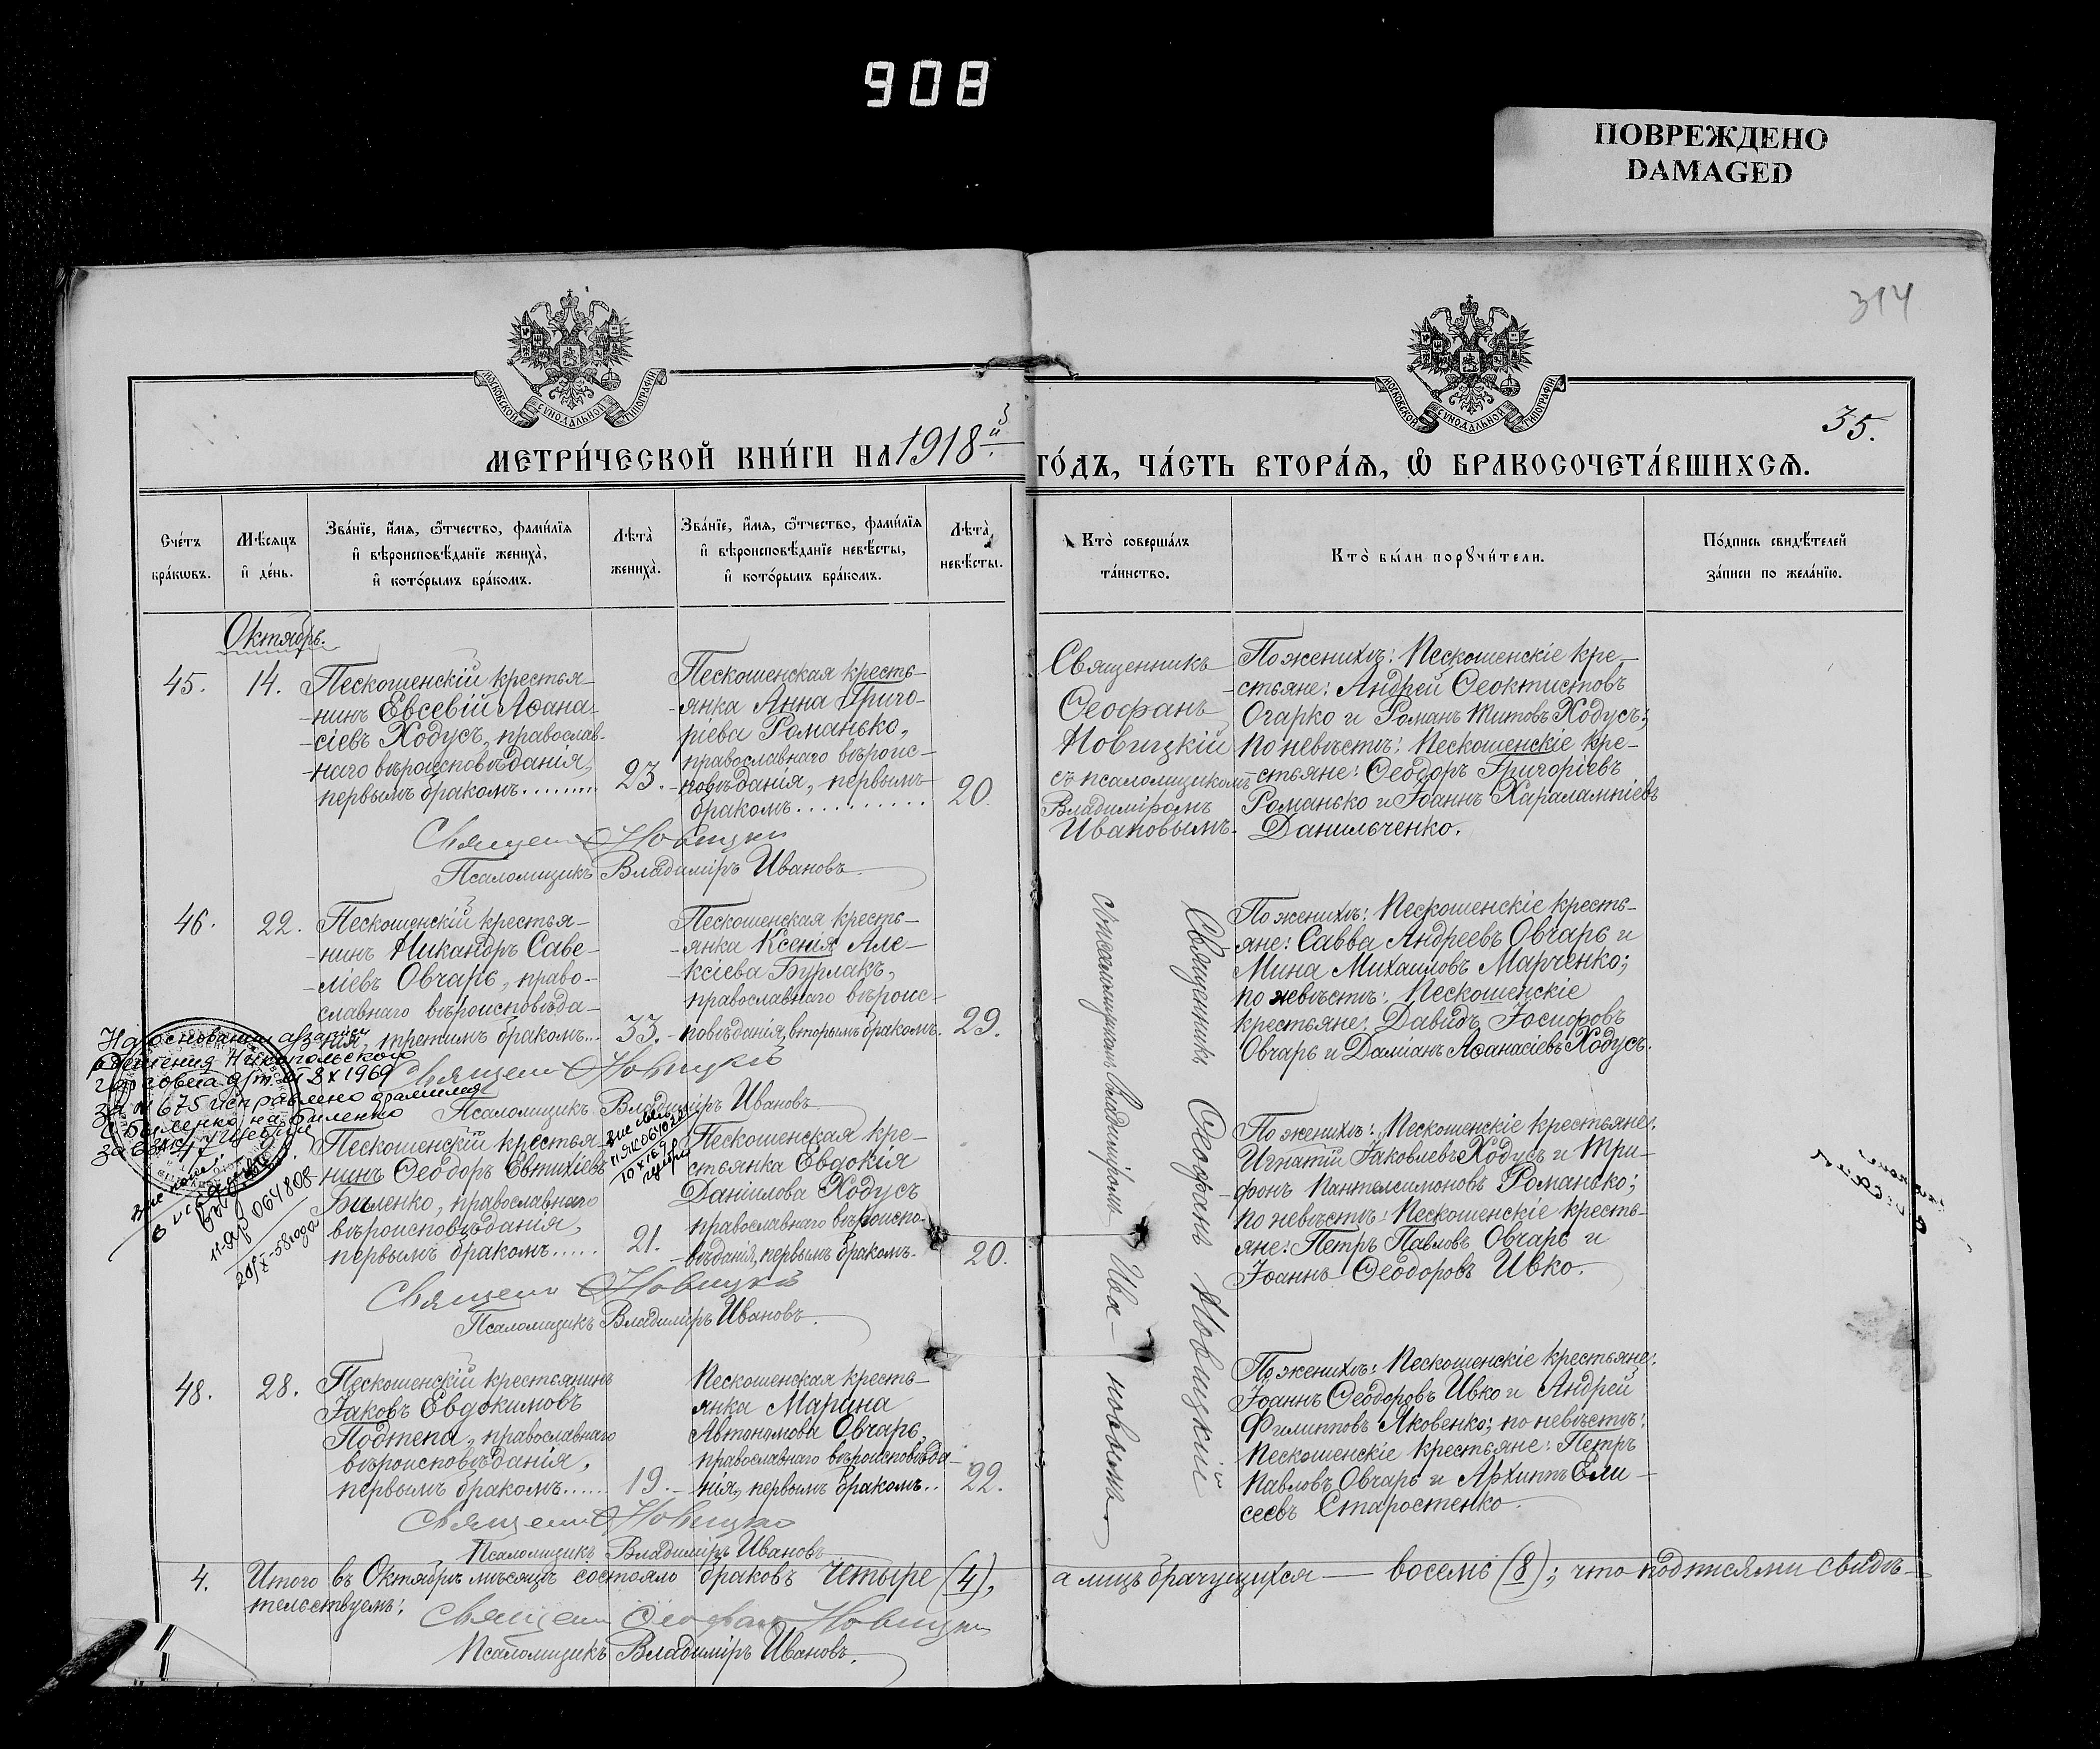 908
ПОВРЕЖДЕНО
DAMAGED
314
35.
МОСКОВСКОЙ СУНОДАЛЬНОЙ ТИПОГРАФІИ
МОСКОВСКОЙ СУНОДАЛЬНОЙ ТИПОГРАФІИ
МЕТРИ́ЧЕСКОЙ КНИ́ГИ НА 1918й
ГО́ДЪ, ЧА́СТЬ ВТОРА́Ѧ, Ѽ БРАКОСОЧЕТА́ВШИХСѦ.
Сче́тъ
бра́кѡвъ.
Мѣ́сѧцъ
и҆ де́нь.
Зва́нїе, и҆́мѧ, ѻ҆́тчество, фами́лїѧ
и҆ вѣроисповѣ́данїе жениха̀,
и҆ кото́рымъ бра́комъ.
Лѣта̀
жениха̀.
Зва́нїе, и҆́мѧ, ѻ҆́тчество, фами́лїѧ
и҆ вѣроисповѣ́данїе невѣ́сты,
и҆ кото́рымъ бра́комъ.
Лѣта̀
невѣ́сты.
Кто̀ соверша́лъ
та́инство.
Кто̀ бы́ли порꙋчи́тели.
По́дпись свидѣ́телей
за́писи по жела́нїю.
Октябрь.
45.
14.
Пескошенскій крестья-
-нинъ Евсевій Аѳана-
-сіевъ Ходусъ, православ-
-наго вѣроисповѣданія,
первымъ бракомъ.........
23.
Пескошенская кресть-
-янка Анна Григо-
ріева Романько,
православнаго вѣроис-
-повѣданія, первымъ
бракомъ...........
20
Священникъ
Ѳеофанъ
Новицкій
съ псаломщикомъ
Владиміромъ
Ивановымъ.
По женихѣ: Пескошенскіе кре-
-стьяне: Андрей Ѳеоктистовъ
Огарко и Романъ Титовъ Ходусъ;
по невѣстѣ: Пескошенскіе кре-
-стьяне: Ѳеодоръ Григоріевъ
Романько и Іоаннъ Харалампіевъ
Данильченко.
Священ Ѳ Новицкій
Псаломщикъ Владиміръ Ивановъ.
46.
22.
Пескошенскій крестья-
-нинъ Никандръ Саве-
-ліевъ Овчарь, право-
славнаго вѣроисповѣда-
нія, третимъ бракомъ...
33.
Пескошенская кресть-
-янка Ксенія Але-
-ксіева Бурлакъ,
православнаго вѣроис-
-повѣданія, вторымъ бракомъ.
29.
Священникъ Ѳеофанъ Новицкій
съ псаломщикомъ Владиміромъ Ива-новымъ.
По женихѣ: Пескошенскіе кресть-
яне: Савва Андреевъ Овчарь и
Мина Михаиловъ Марченко;
по невѣстѣ: Пескошенскіе
крестьяне: Давидъ Іосифовъ
Овчарь и Даміанъ Аѳанасіевъ Ходусъ.
Священ Ѳ Новицкій
Псаломщикъ Владиміръ Ивановъ
На основании
решения Никопольского
горсовета от 8 X 1969
за № 675 исправлено фамилия
с Быленко на Биленко
11-ЯР 064808
20/X-58 года
Пескошенскій крестья-
-нинъ Ѳеодоръ Евтихіевъ
Биленко, православнаго
вѣроисповѣданія,
первымъ бракомъ.....
21.
Пескошенская кре-
стьянка Евдокія
Даніилова Ходусъ
православнаго вѣроиспо-
-вѣданія, первымъ бракомъ.
20.
По женихѣ: Пескошенскіе крестьяне:
Игнатій Іаковлевъ Ходусъ и Три-
-фонъ Пантелеимоновъ Романько;
по невѣстѣ: Пескошенскіе кресть-
яне: Петръ Павловъ Овчарь и
Іоаннъ Ѳеодоровъ Ивко.
Священ Ѳ Новицкій
Псаломщикъ Владиміръ Ивановъ.
48.
28.
Пескошенскій крестьянинъ
Іаковъ Евдокимовъ
Подтепа, православнаго
вѣроисповѣданія,
первымъ бракомъ......
19.
Пескошенская кресть-
янка Марина
Автономова Овчарь,
православнаго вѣроисповѣда-
нія, первымъ бракомъ..
22.
По женихѣ: Пескошенскіе крестьяне:
Іоаннъ Ѳеодоровъ Ивко и Андрей
Филипповъ Яковенко; по невѣстѣ:
Пескошенскіе крестьяне: Петръ
Павловъ Овчарь и Архиппъ Ели-
сеевъ Старостенко.
Священ Ѳ Новицкій
Псаломщикъ Владиміръ Ивановъ
4.
Итого въ Октябрѣ мѣсяцѣ состояло браковъ четыре (4), а лицъ брачущихся — восемь (8); что подписями свидѣ-
тельствуемъ:
Священ Ѳеофан Новицкій
Псаломщикъ Владиміръ Ивановъ.